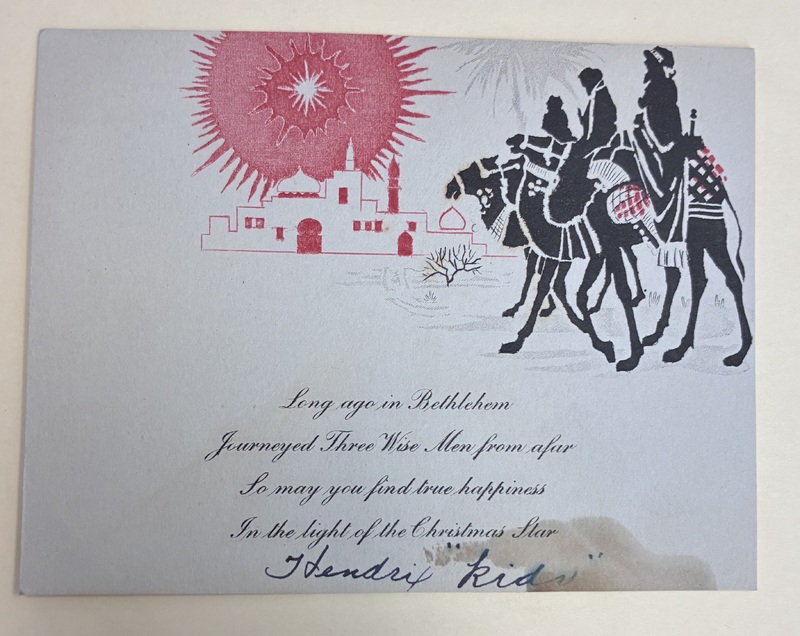 Long ago in Bethlehem
Journeyed Three Wise Men from afar
So may you find true happiness
In the light of the Christmas Star
Hendrix "Kids"